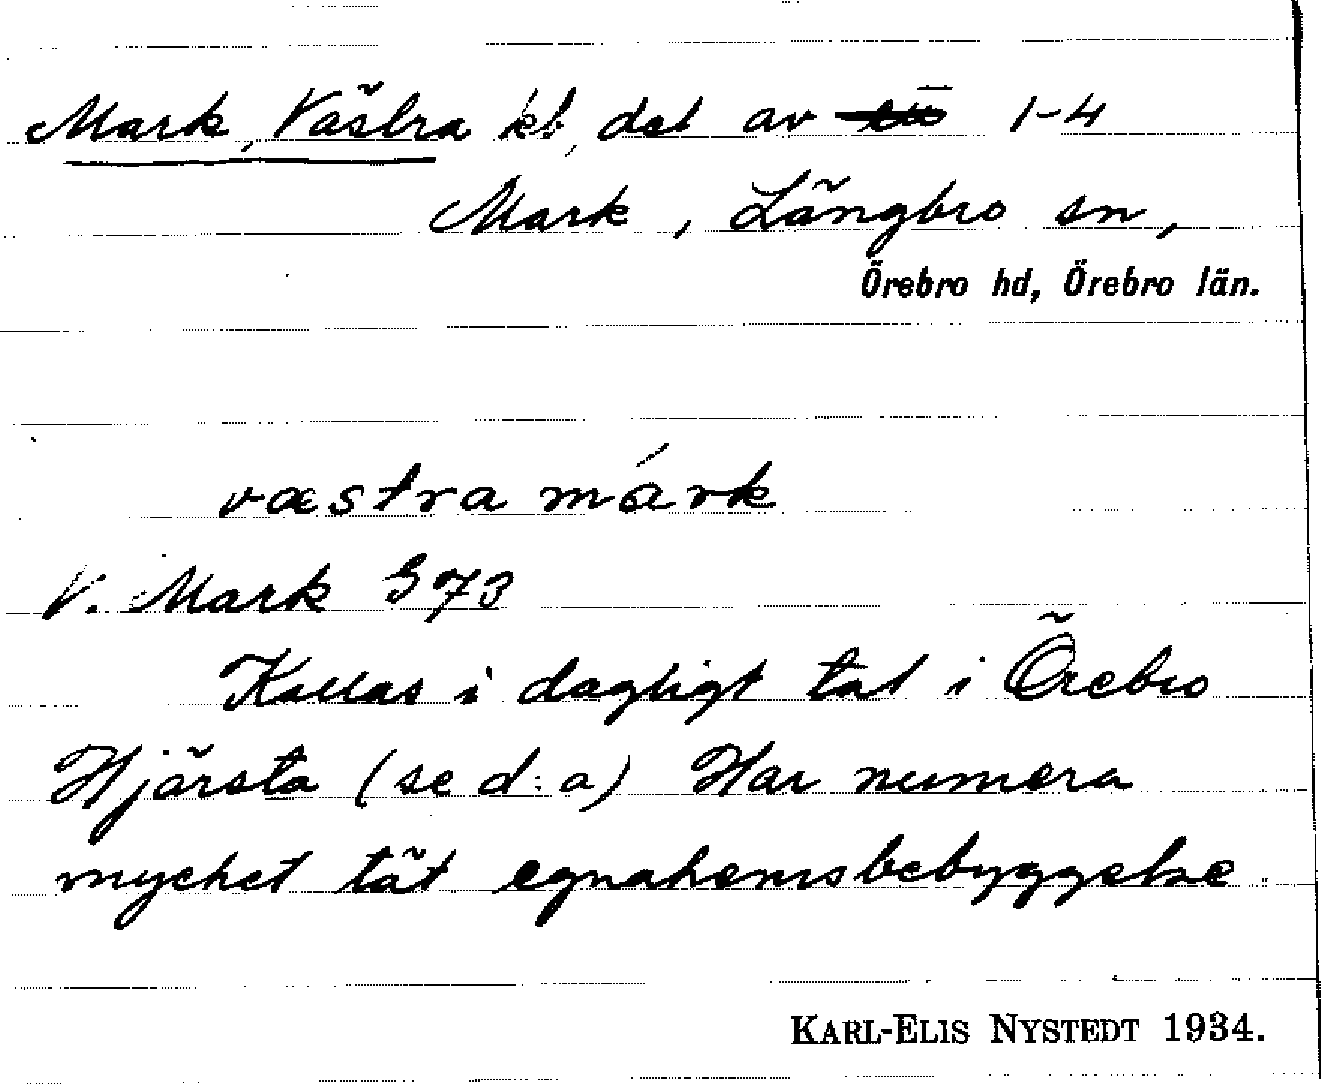 Mark, Västra kb, del av 1-4
Mark, Längbro sn,
Örebro hd, Örebro län.
væstra márk
V. Mark G73
Kallas i dagligt tal i Örebro
Hjärsta (se d:a) Har numera
mycket tät egnahemsbebyggelse.
KARL-ELIS NYSTEDT 1934.